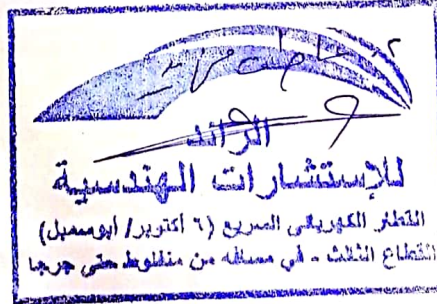 الرائد
للإستشارات الهندسية
القطار الكهربائى السريع (٦ أكتوبر/ أبوسمبل)
القطاع الثالث - في مسافه من منفلوط حتى جرجا